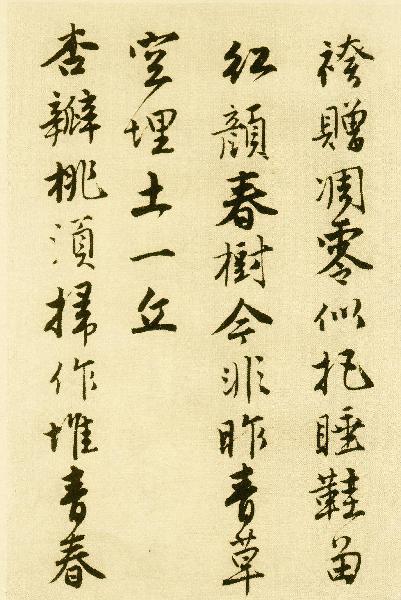 袴贈凋零似把睡鞋留
紅顔春樹今非昨青草
空埋土一丘
杏瓣桃湏掃作堆青春